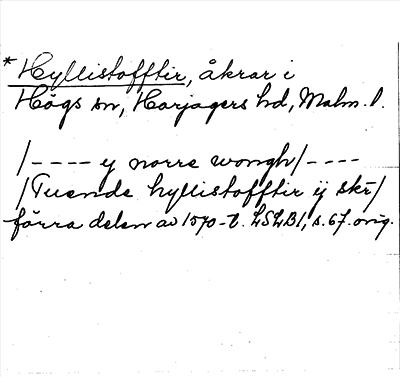 * Hyllistofftir, åkrar i
Högs sn, Harjagers hd, Malm. l.
/---- y norre wongh/----
/Tuende hyllistofftir ÿ skr/
förra delen av 1570-t. LSLB1, s. 67. orig.